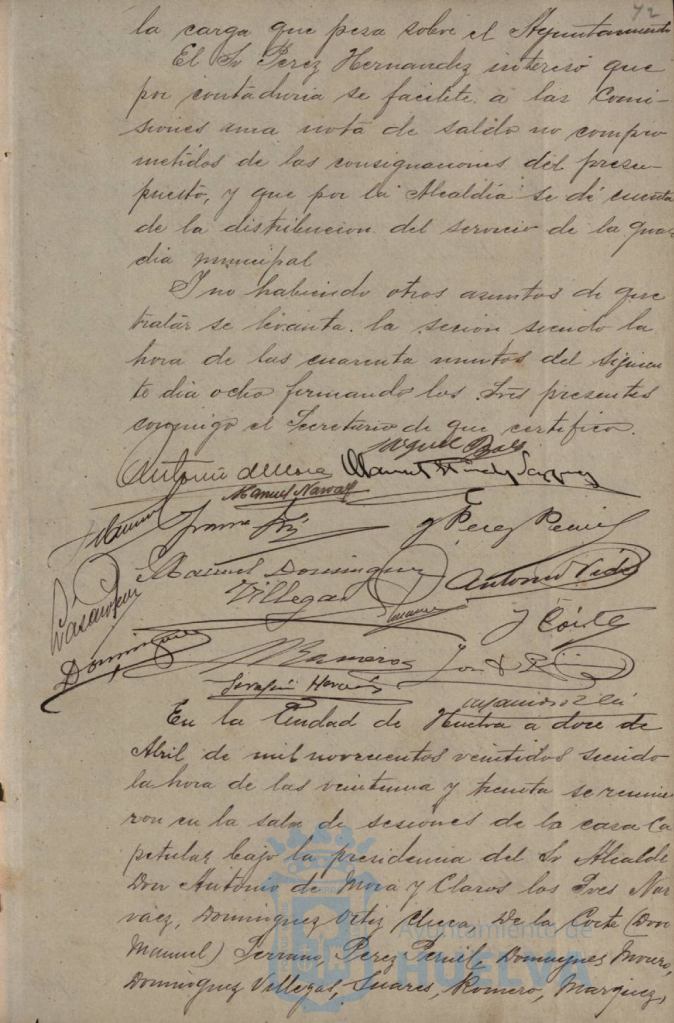 72
la carga que pesa sobre el Ayuntamiento
El Sr Perez Hernandez interesó que
por contaduria se facilite a las Comi-
siones una nota de saldo no compro
metidos de las consignaciones del presu-
puesto, y que por la Alcaldia se dé cuenta
de la distribucion del servicio de la guar
dia municipal
Y no habiendo otros asuntos de que
tratar se levanta la sesion siendo la
hora de las cuarenta minutos del siguien
te dia ocho firmando los Sres presentes
conmigo el Secretario de que certifico.
Antonio de Mora Manuel
Manuel Narvaez
y Perez Pernil
Manuel Dominguez
Villegas
Antonio Vida
y Corte
Dominguez
Romero
Serafin
En la Ciudad de Huelva a doce de
Abril de mil novecuentos veintidos siendo
la hora de las veintiuna y treinta se reunie
ron en la sala de sesiones de la casa Ca
petular bajo la presidencia del Sr Alcalde
Don Antonio de Mora y Claros los Sres Nar
vaez, Dominguez Ortiz Checa, De la Corte (Don
Manuel) Serrano, Perez Pernil, Domingues Morero,
Dominguez Villegas, Suares, Romero, Marquez,
Ayuntamiento de
HUELVA